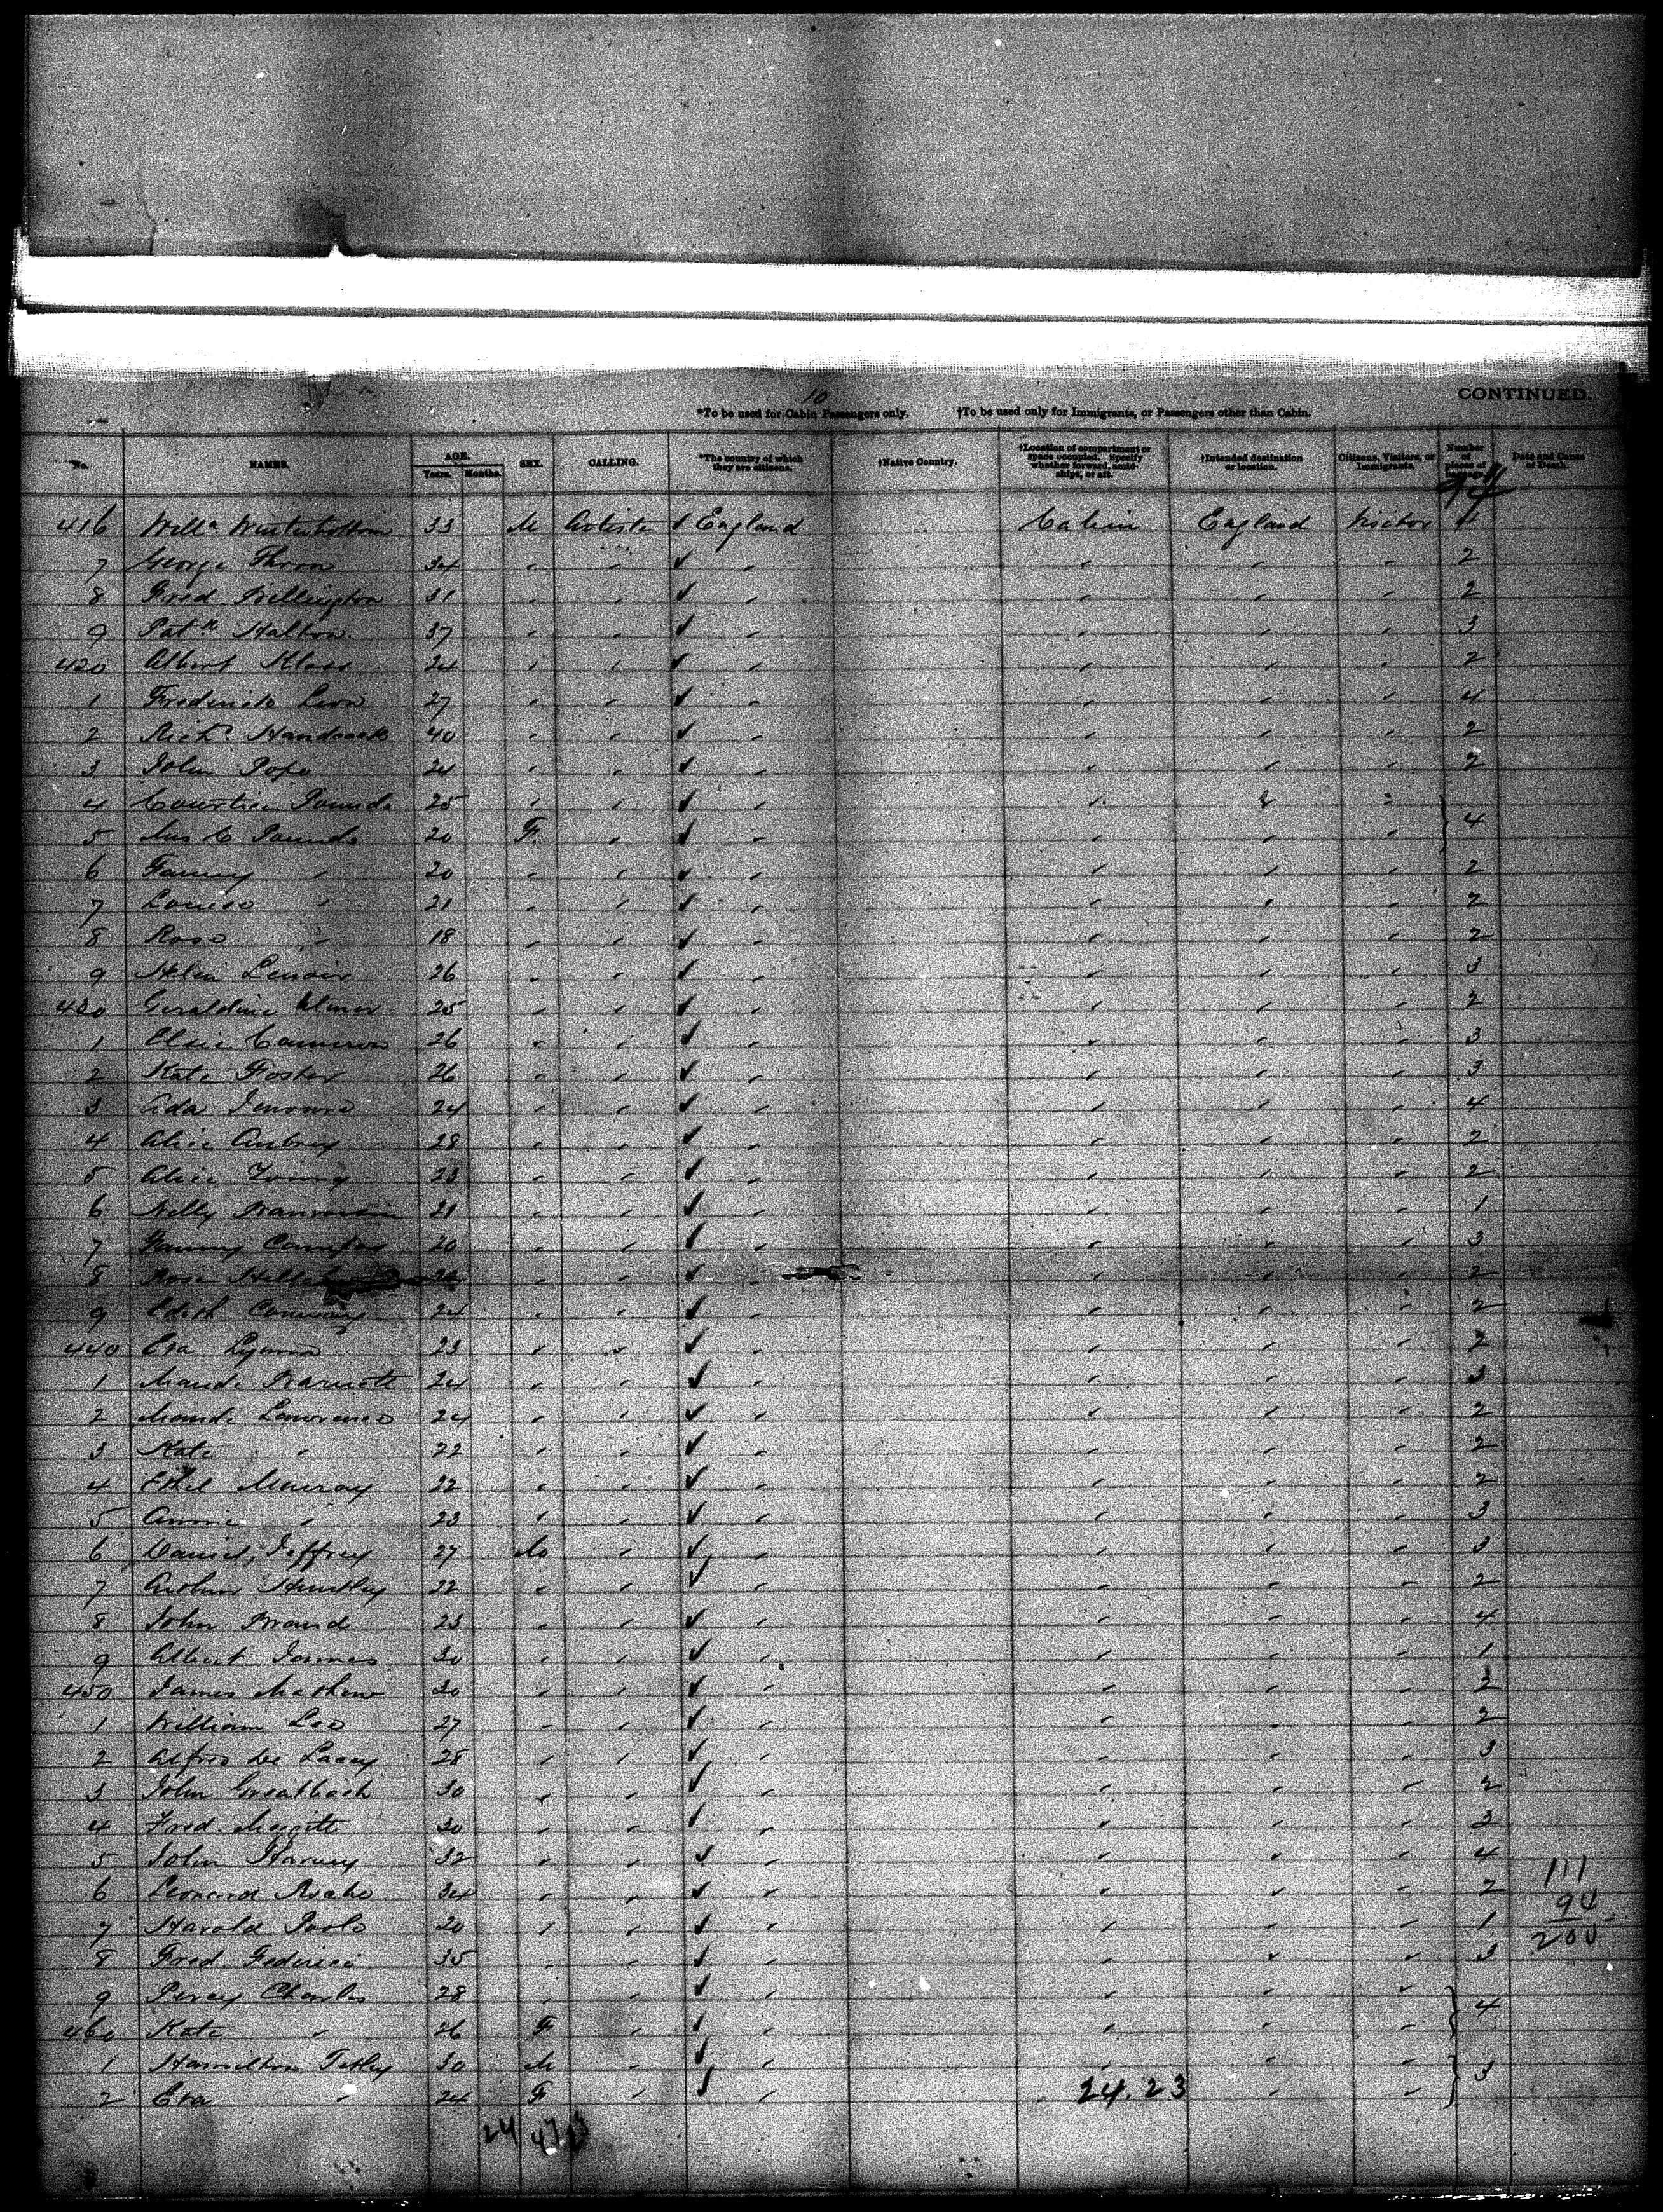 10
CONTINUED.
*To be used for Cabin Passengers only. †To be used only for Immigrants, or Passengers other than Cabin.
No. NAMES. AGE. Years. Months. SEX. CALLING. *The country of which they are citizens. †Native Country. †Location of compartment or space occupied. Specify whether forward, amidships, or aft. †Intended destination or location. Citizens, Visitors, or Immigrants. Number of pieces of Date and Cause of Death.
94
416 Willm Winterbottom 33 M Artiste ✓ England Cabin England Visitor 4
7 George Thron 34 " " ✓ " " " " 2
8 Fred. Billington 31 " " ✓ " " " " 2
9 Patk Halton 37 " " ✓ " " " " 3
420 Albert Klass 24 " " ✓ " " " " 2
1 Frederick Leon 27 " " ✓ " " " " 4
2 Richd Handcock 40 " " ✓ " " " " 2
3 John Pope 24 " " ✓ " " " " 2
4 Courtice Pounds 25 " " ✓ " " " "
5 Mrs C Pounds 20 F. " ✓ " " " " } 4
6 Fanny " 20 " " ✓ " " " " 2
7 Louise " 21 " " ✓ " " " " 2
8 Rose " 18 " " ✓ " " " " 2
9 Helen Lenoir 26 " " ✓ " " " " 3
430 Geraldine Ulmer 25 " " ✓ " " " " 2
1 Elsie Cameron 26 " " ✓ " " " " 3
2 Kate Foster 26 " " ✓ " " " " 3
3 Ada 24 " " ✓ " " " " 4
4 Alice Aubrey 28 " " ✓ " " " " 2
5 Alice Young 23 " " ✓ " " " " 2
6 Nelly 21 " " ✓ " " " " 1
7 Fanny 20 " " ✓ " " " " 3
8 Rose " " ✓ " " " " 2
9 Edith Conway 24 " " ✓ " " " " 2
440 Eva 23 " " ✓ " " " " 2
1 Maude Barnett 24 " " ✓ " " " " 3
2 Maude Lawrence 24 " " ✓ " " " " 2
3 Kate " 22 " " ✓ " " " " 2
4 Ethel Murray 22 " " ✓ " " " " 2
5 Annie " 23 " " ✓ " " " " 3
6 Daniel, Jeffrey 27 M " ✓ " " " " 3
7 Arthur Huntley 22 " " ✓ " " " " 2
8 John Brand 23 " " ✓ " " " " 4
9 Albert James 30 " " ✓ " " " " 1
450 James Mathew 30 " " ✓ " " " " 2
1 William Lee 27 " " ✓ " " " " 2
2 Alfred de Lacey 28 " " ✓ " " " " 3
3 John Greatbach 30 " " ✓ " " " " 2
4 Fred. 30 " " ✓ " " " " 2
5 John Harvey 32 " " ✓ " " " " 4
6 Leonard Roche 34 " " ✓ " " " " 2
7 Harold Poole 20 " " ✓ " " " " 1
8 Fred. Federici 35 " " ✓ " " " " 3
9 Percy Charles 28 " " ✓ " " " "
460 Kate " 26 F " ✓ " " " " } 4
1 Hamilton Tetley 30 M " ✓ " " " "
2 Eva " 24 F " ✓ " " " } 3
111
94
205
24.23
24 47